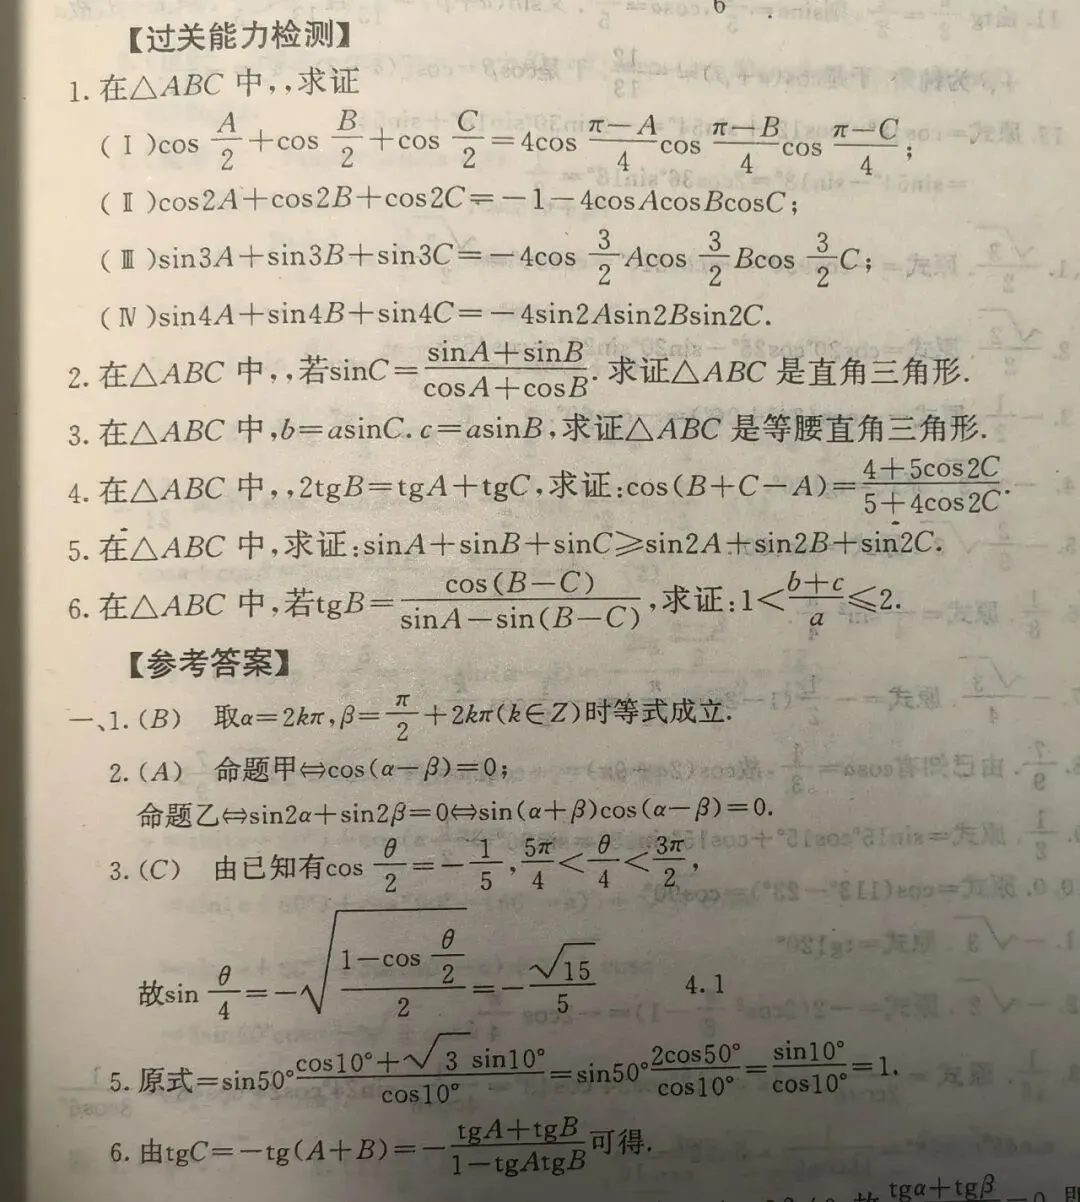 【过关能力检测】
1. 在△ABC 中,,求证
(Ⅰ)cos A/2+cos B/2+cos C/2=4cos (π−A)/4 cos (π−B)/4 cos (π−C)/4;
(Ⅱ)cos2A+cos2B+cos2C=−1−4cosAcosBcosC;
(Ⅲ)sin3A+sin3B+sin3C=−4cos 3/2 Acos 3/2 Bcos 3/2 C;
(Ⅳ)sin4A+sin4B+sin4C=−4sin2Asin2Bsin2C.
2. 在△ABC 中,,若sinC=(sinA+sinB)/(cosA+cosB). 求证△ABC 是直角三角形.
3. 在△ABC 中,b=asinC. c=asinB,求证△ABC 是等腰直角三角形.
4. 在△ABC 中,,2tgB=tgA+tgC,求证:cos(B+C−A)=(4+5cos2C)/(5+4cos2C).
5. 在△ABC 中,求证:sinA+sinB+sinC⩾sin2A+sin2B+sin2C.
6. 在△ABC 中,若tgB=cos(B−C)/(sinA−sin(B−C)),求证:1<(b+c)/a⩽2.
【参考答案】
一、1. (B) 取α=2kπ,β=π/2+2kπ(k∈Z)时等式成立.
2. (A) 命题甲⇔cos(α−β)=0;
命题乙⇔sin2α+sin2β=0⇔sin(α+β)cos(α−β)=0.
3. (C) 由已知有cos θ/2=−1/5,5π/4<θ/4<3π/2,
故sin θ/4=−√((1−cos θ/2)/2)=−√15/5 4. 1
5. 原式=sin50°(cos10°+√3 sin10°)/cos10°=sin50° 2cos50°/cos10°=sin10°/cos10°=1.
6. 由tgC=−tg(A+B)=−(tgA+tgB)/(1−tgAtgB)可得.
tgα+tgβ